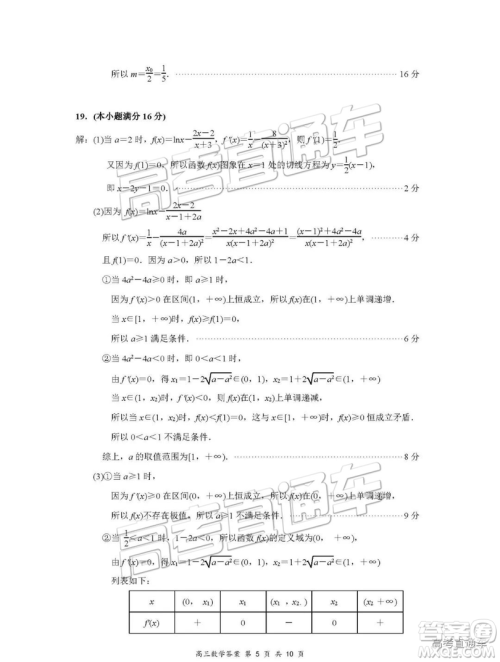 所以 m=x₀/2=1/5. 16 分
19．(本小题满分 16 分)
解：(1)当 a=2 时，f(x)=lnx－(2x－2)/(x+3)，f′(x)=1/x－8/(x+3)²，则 f′(1)=1/2.
又因为 f(1)=0，所以函数 f(x)图象在 x=1 处的切线方程为 y=1/2(x－1)，
即 x－2y－1=0. 2 分
(2)因为 f(x)=lnx－(2x－2)/(x－1+2a)
所以 f′(x)=1/x－4a/(x－1+2a)²=(x²－2x+4a²－4a+1)/(x(x－1+2a)²)=((x－1)²+4a²－4a)/(x(x－1+2a)²)， 4 分
且 f(1)=0．因为 a＞0，所以 1－2a＜1.
①当 4a²－4a≥0 时，即 a≥1，
因为 f′(x)＞0 在区间(1，+∞)上恒成立，所以 f(x)在(1，+∞)上单调递增．
当 x∈[1，+∞)时，f(x)≥f(1)=0，
所以 a≥1 满足条件． 6 分
②当 4a²－4a＜0 时，即 0＜a＜1 时，
由 f′(x)=0，得 x₁=1－2√(a－a²)∈(0，1)，x₂=1+2√(a－a²)∈(1，+∞)
当 x∈(1，x₂)时，f′(x)＜0，则 f(x)在(1，x₂)上单调递减，
所以当 x∈(1，x₂)时，f(x)＜f(1)=0，这与 x∈[1，+∞)时，f(x)≥0 恒成立矛盾．
所以 0＜a＜1 不满足条件．
综上，a 的取值范围为[1，+∞)． 8 分
(3)①当 a≥1 时，
因为 f′(x)≥0 在区间(0，+∞)上恒成立，所以 f(x)在(0，+∞)上单调递增，
所以 f(x)不存在极值，所以 a≥1 不满足条件． 9 分
②当 1/2＜a＜1 时，1－2a＜0，所以函数 f(x)的定义域为(0，+∞)，
由 f′(x)=0，得 x₁=1－2√(a－a²)∈(0，1)，x₂=1+2√(a－a²)∈(1，+∞)
列表如下：
x (0，x₁) x₁ (x₁，x₂) x₂ (x₂，+∞)
f′(x) + 0 － 0 +
高三数学答案 第 5 页 共 10 页
高考直通车
高考直通车
高考直通车
高考直通车